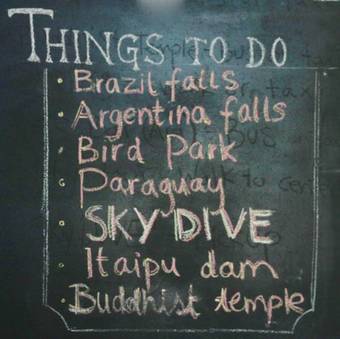 THINGS TO DO
• Brazil falls
• Argentina falls
• Bird Park
• Paraguay
• SKY DIVE
• Itaipu dam
• Buddhist temple